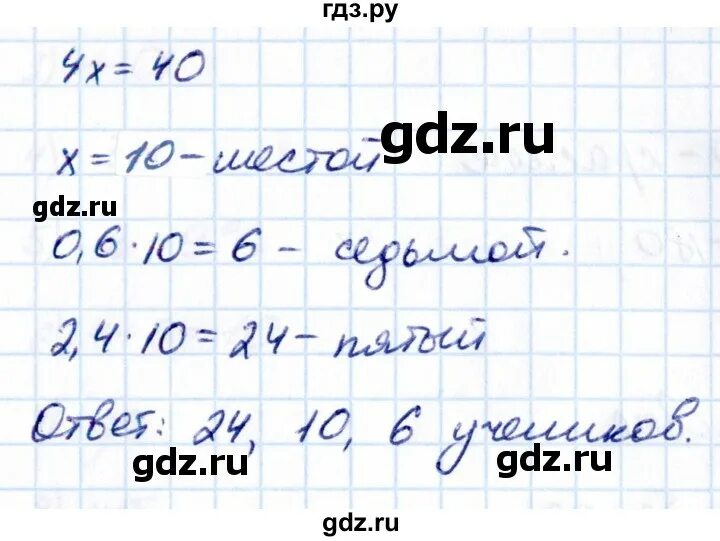 гдз.ру
4x = 40
gdz.ru
x = 10 – шестой
gdz.ru
0,6 · 10 = 6 – седьмой.
2,4 · 10 = 24 – пятый
Ответ: 24, 10, 6 учеников.
gdz.ru
gdz.ru
gdz.ru